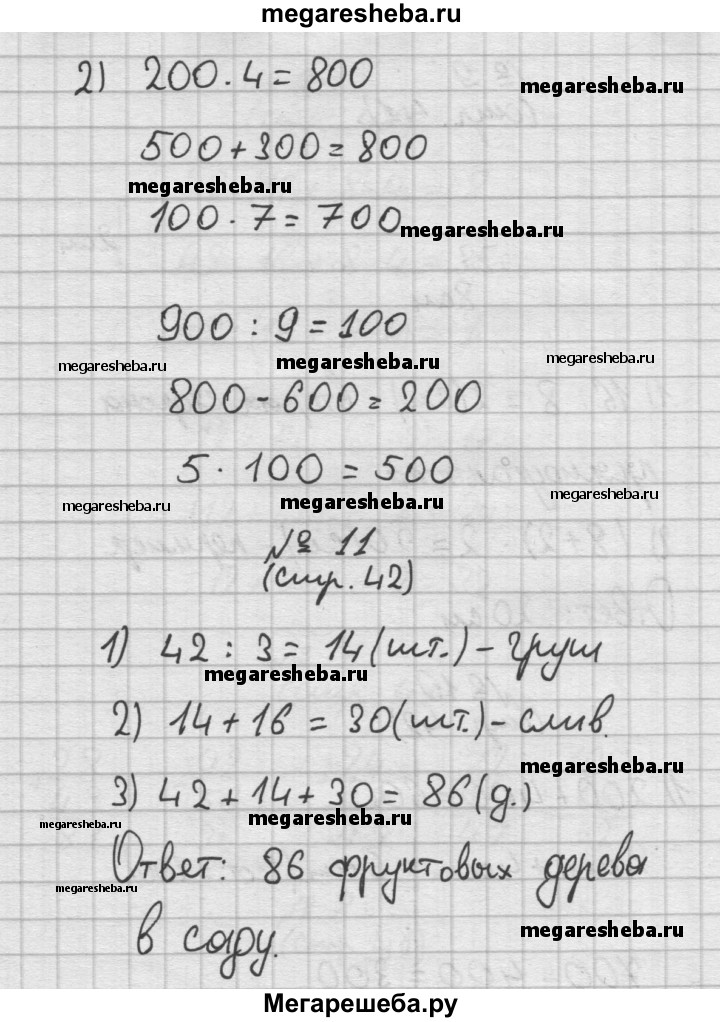 megaresheba.ru
2) 200 · 4 = 800
megaresheba.ru
500 + 300 = 800
megaresheba.ru
100 · 7 = 700
megaresheba.ru
900 : 9 = 100
megaresheba.ru megaresheba.ru megaresheba.ru
800 - 600 = 200
5 · 100 = 500
megaresheba.ru megaresheba.ru megaresheba.ru
№ 11
(стр. 42)
1) 42 : 3 = 14 (шт.) - груш
megaresheba.ru
2) 14 + 16 = 30 (шт.) - слив.
megaresheba.ru
3) 42 + 14 + 30 = 86 (д.)
megaresheba.ru megaresheba.ru
Ответ: 86 фруктовых дерева
megaresheba.ru
в саду.
megaresheba.ru
Мегарешеба.ру